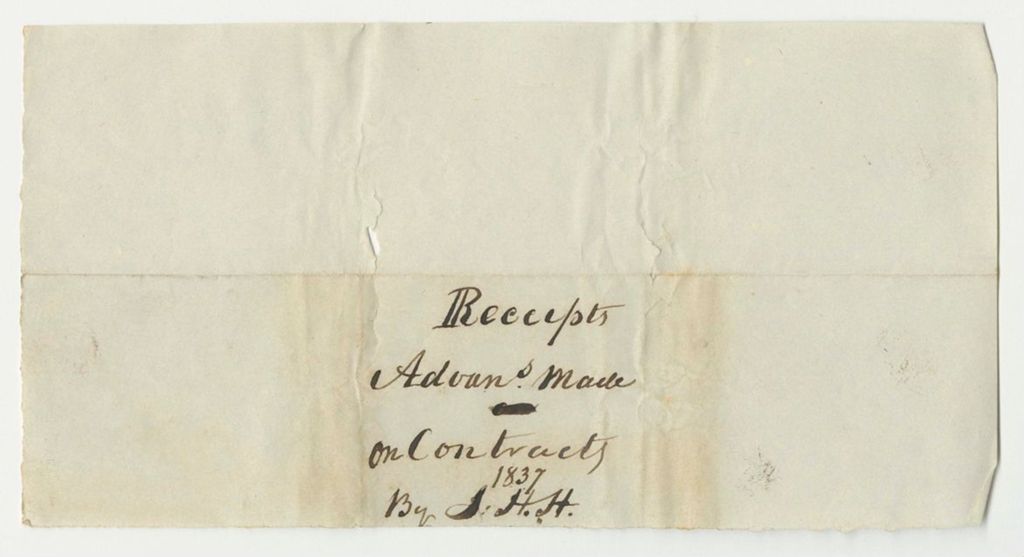 Receipts
Advan.s Made
on Contracts
1837
By J. H. H.